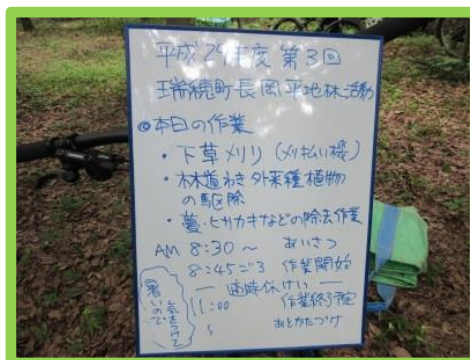 平成29年度 第3回
瑞穂町長岡平地林活動
◎本日の作業
・下草刈り(刈払い機)
・林道わき外来種植物
の駆除
・蔓・ヒサカキなどの除去作業
AM 8:30〜 あいさつ
8:45ごろ 作業開始
― 適時休けい ―
11:00 作業終了予定
〜 あとかたづけ
暑いので
気をつけて